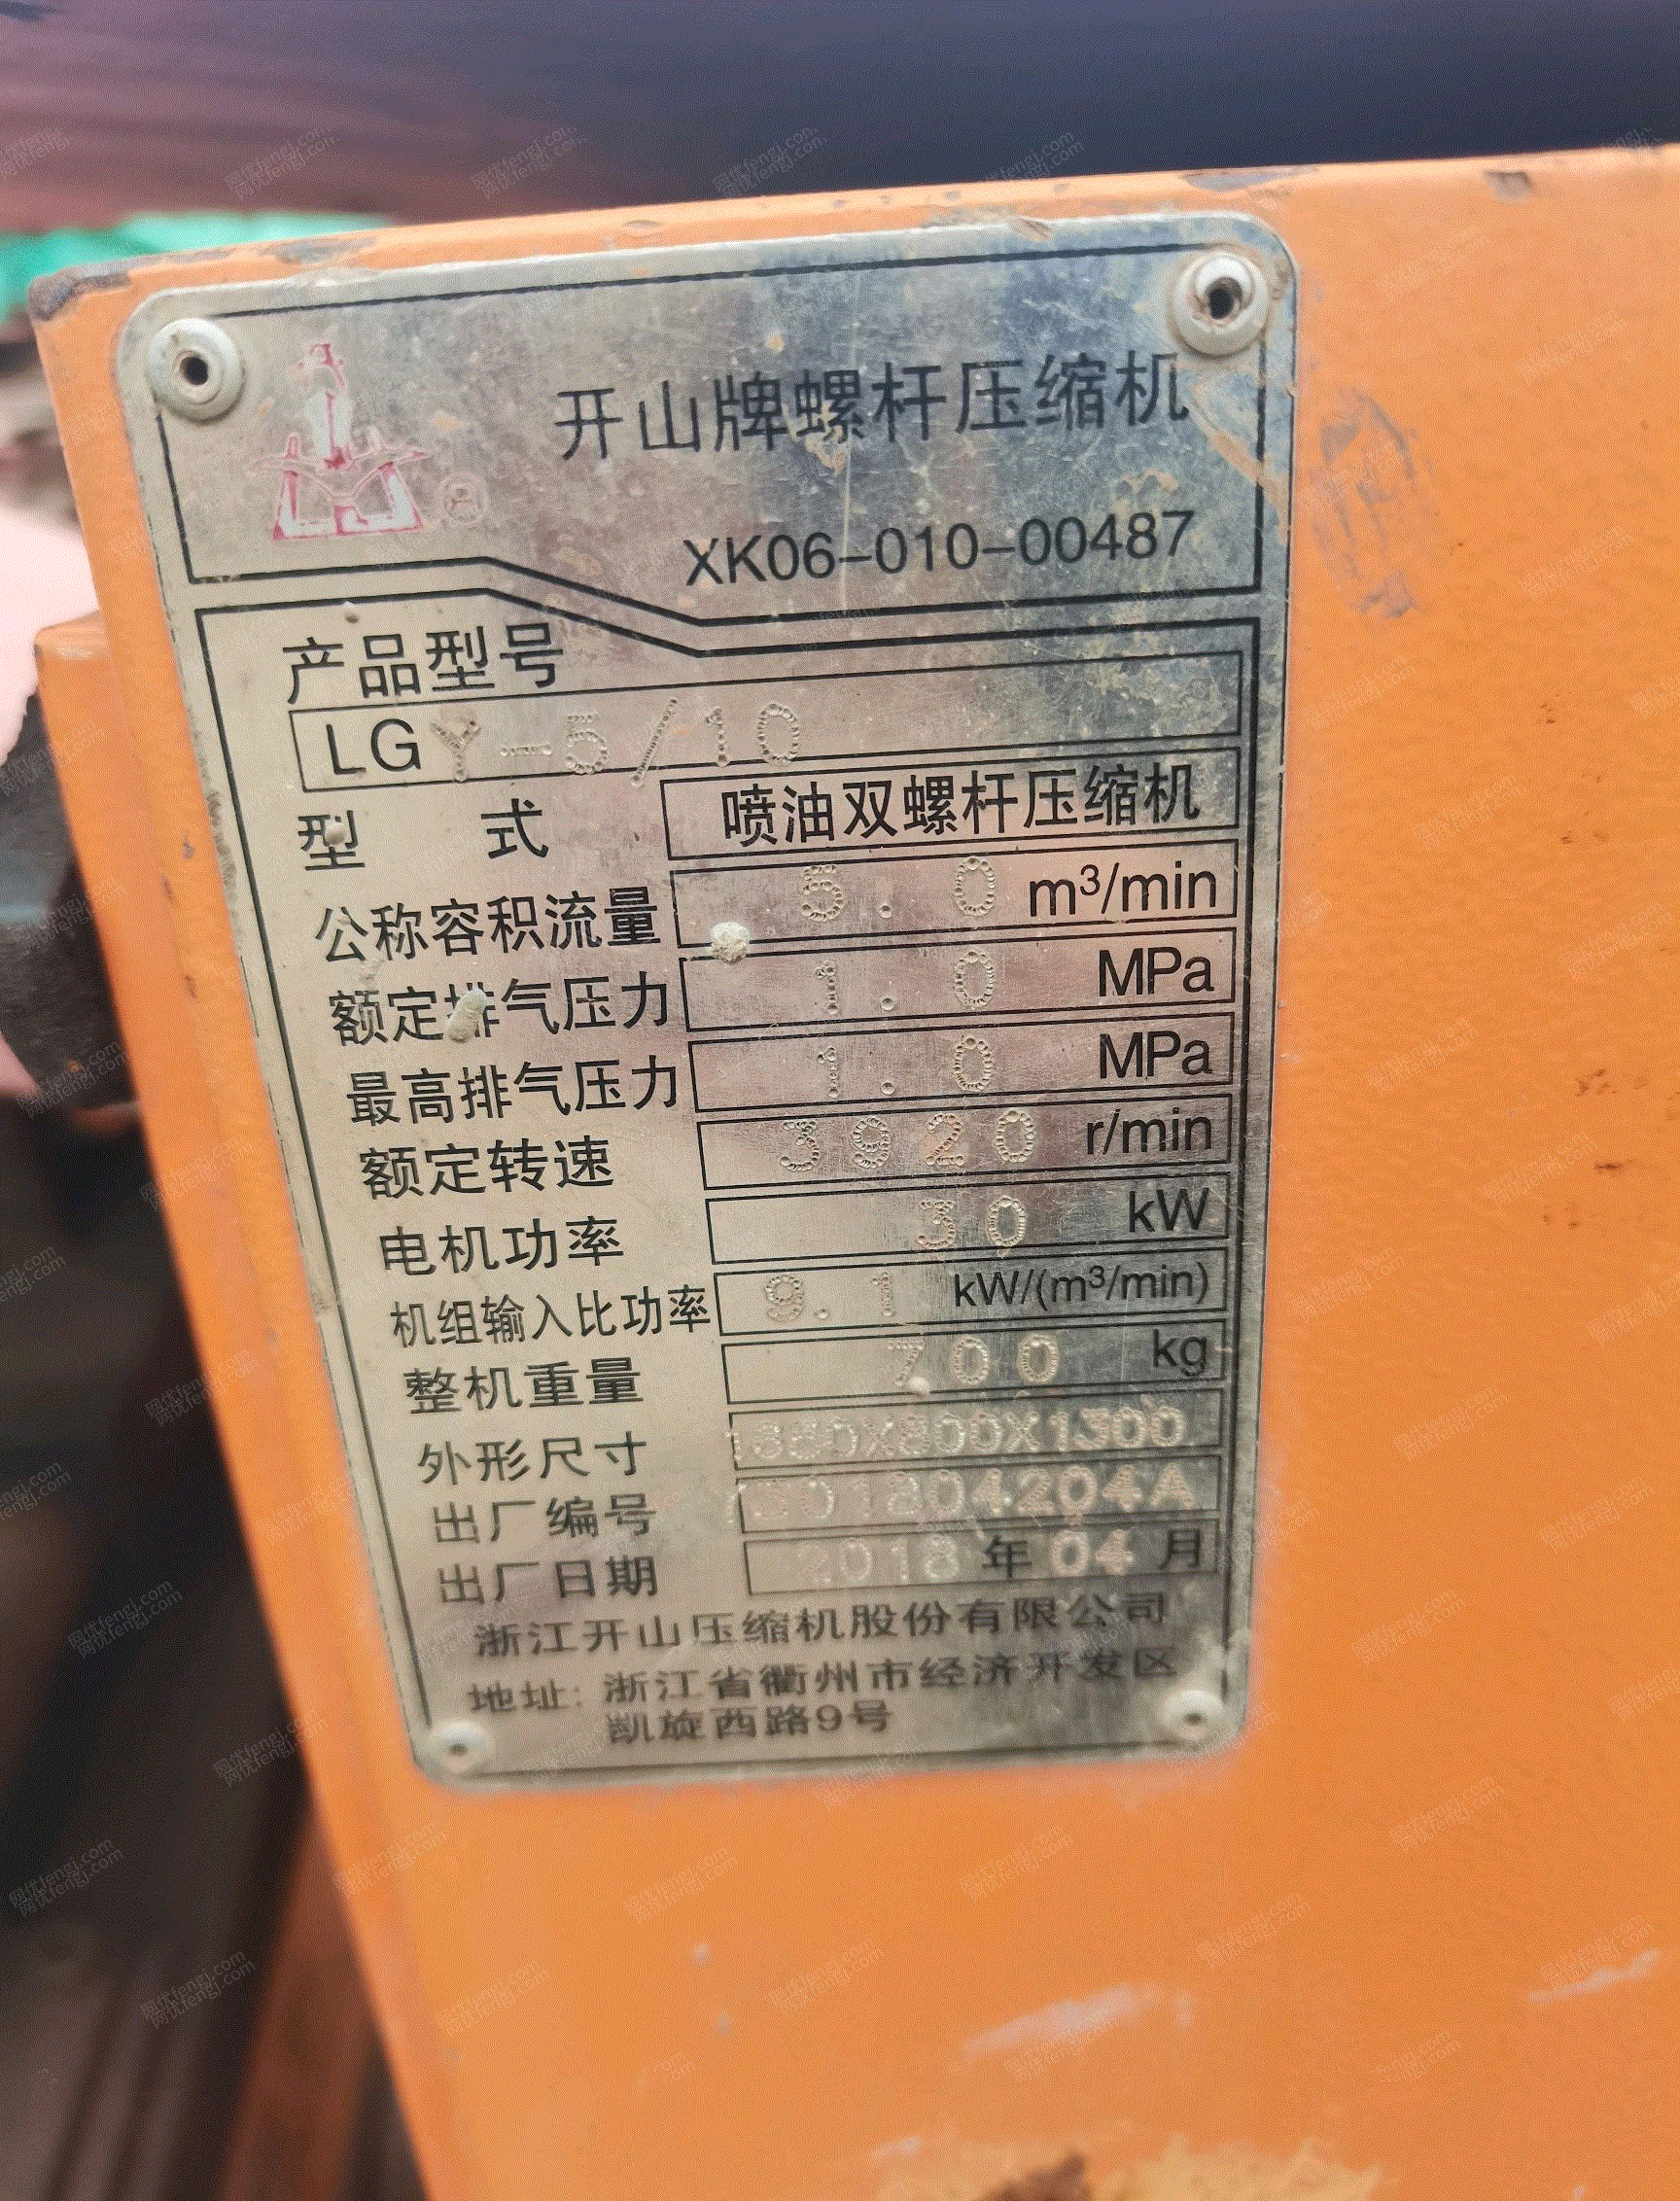 开山牌螺杆压缩机
XK06-010-00487
产品型号
LGY-5/10
型 式 喷油双螺杆压缩机
公称容积流量 5.0 m³/min
额定排气压力 1.0 MPa
最高排气压力 1.0 MPa
额定转速 3920 r/min
电机功率 30 kW
机组输入比功率 9.1 kW/(m³/min)
整机重量 700 kg
外形尺寸
出厂编号
出厂日期 2018 年 04 月
浙江开山压缩机股份有限公司
地址: 浙江省衢州市经济开发区
凯旋西路9号